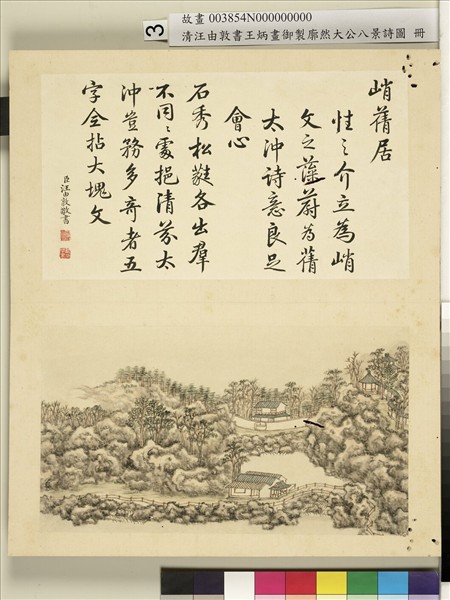 故畫 003854N000000000
清汪由敦書王炳畫御製廓然大公八景詩圖 冊
3
峭蒨居
性之介立為峭
文之藻蔚為蒨
太沖詩意良足
會心
石秀松蕤各出羣
不同〻處挹清芬太
沖豈務多奇者五
字全拈大塊文
臣汪由敦敬書